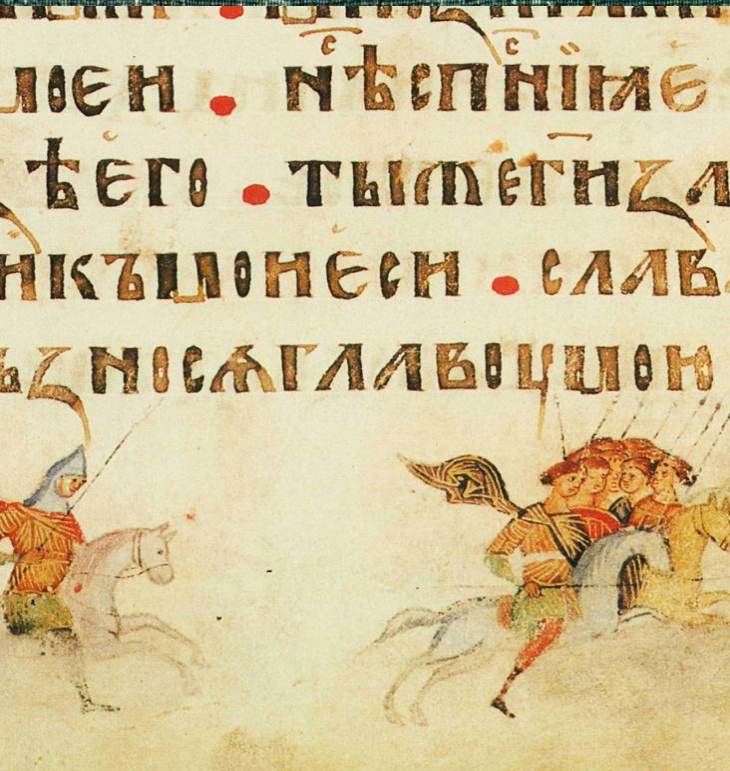 моеи • нѣспн҃їꙗе
ѣего • тыжеги҃ꙁа
икъмоиеси • слав
ъꙁносѧглавоумою